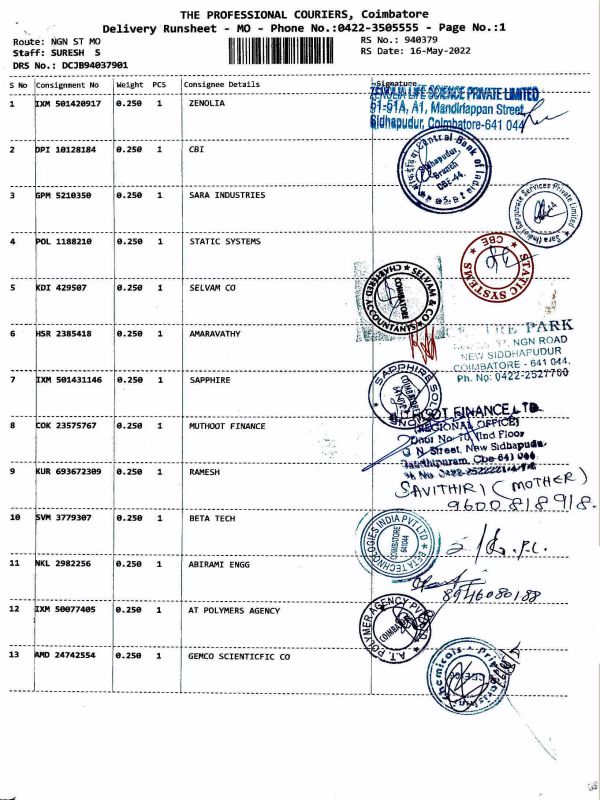 THE PROFESSIONAL COURIERS, Coimbatore
Delivery Runsheet - MO - Phone No.:0422-3505555 - Page No.:1
Route: NGN ST MO RS No.: 940379
Staff: SURESH S RS Date: 16-May-2022
DRS No.: DCJB94037901
S No Consignment No Weight PCS Consignee Details Signature
1 IXM 501420917 0.250 1 ZENOLIA
ZENOLIA LIFE SCIENCE PRIVATE LIMITED
51-51A, A1, Mandiriappan Street
Sidhapudur, Coimbatore-641 044
2 DPI 10128184 0.250 1 CBI
Central Bank of India
Sidhapudur,
Branch
CBE-44.
3 GPM 5210350 0.250 1 SARA INDUSTRIES
Sara Corporate Services Private Limited
4 POL 1188210 0.250 1 STATIC SYSTEMS
STATIC SYSTEMS
CBE
5 KDI 429507 0.250 1 SELVAM CO
SELVAM & CO
CHARTERED ACCOUNTANTS
COIMBATORE
6 HSR 2385418 0.250 1 AMARAVATHY
CENTRE PARK
97, NGN ROAD
NEW SIDDHAPUDUR
COIMBATORE - 641 044.
Ph. No: 0422-2527780
7 IXM 501431146 0.250 1 SAPPHIRE
SAPPHIRE SOLUTIONS
COIMBATORE
8 COK 23575767 0.250 1 MUTHOOT FINANCE
FINANCE LTD
(REGIONAL OFFICE)
Door No 70, IInd Floor
G N Street, New Sidhapudu,
Gandhipuram, Cbe 641 044
9 KUR 693672309 0.250 1 RAMESH
SAVITHIRI (MOTHER)
9600818918.
10 SVM 3779307 0.250 1 BETA TECH
BETA TECHNOLOGIES INDIA PVT LTD
COIMBATORE
641044
11 NKL 2982256 0.250 1 ABIRAMI ENGG
8946080188
12 IXM 50077405 0.250 1 AT POLYMERS AGENCY
A.T. POLYMER AGENCY PVT LTD
COIMBATORE
13 AMD 24742554 0.250 1 GEMCO SCIENTICFIC CO
Chemicals